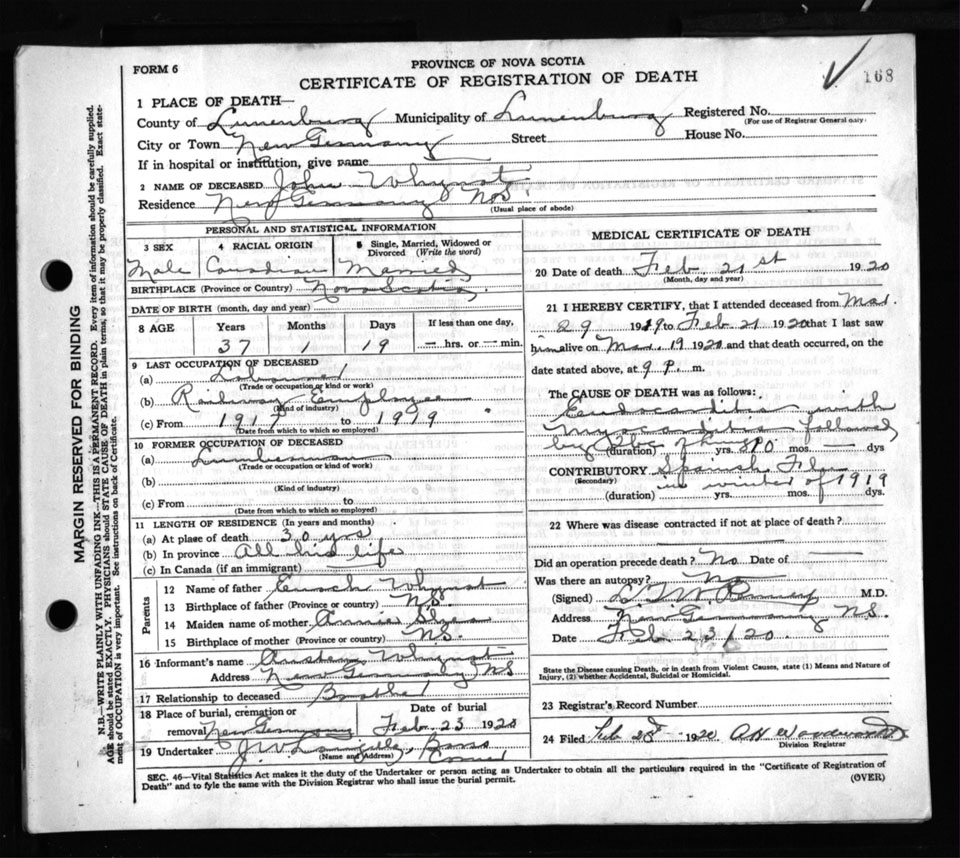 FORM 6
PROVINCE OF NOVA SCOTIA
CERTIFICATE OF REGISTRATION OF DEATH
168
1 PLACE OF DEATH—
County of Lunenburg Municipality of Lunenburg Registered No.
(For use of Registrar General only)
City or Town New Germany Street House No.
If in hospital or institution, give name
2 NAME OF DECEASED John Whynot
Residence New Germany N.S.
(Usual place of abode)
PERSONAL AND STATISTICAL INFORMATION
3 SEX 4 RACIAL ORIGIN 5 Single, Married, Widowed or Divorced (Write the word)
Male Canadian Married
BIRTHPLACE (Province or Country) Nova Scotia
DATE OF BIRTH (month, day and year)
8 AGE Years Months Days If less than one day,
37 1 19 — hrs. or — min.
9 LAST OCCUPATION OF DECEASED
(a) Labourer
(Trade or occupation or kind or work)
(b) Railway Employee
(Kind of industry)
(c) From 1917 to 1919
(Date from which to which so employed)
10 FORMER OCCUPATION OF DECEASED
(a) Lumberman
(Trade or occupation or kind of work)
(b)
(Kind of industry)
(c) From to
(Date from which to which so employed)
11 LENGTH OF RESIDENCE (In years and months)
(a) At place of death 30 yrs
(b) In province All his life
(c) In Canada (if an immigrant)
Parents
12 Name of father Enoch Whynot
13 Birthplace of father (Province or country) N.S.
14 Maiden name of mother Annie
15 Birthplace of mother (Province or country) N.S.
16 Informant's name Austen Whynot
Address New Germany N.S
17 Relationship to deceased Brother
18 Place of burial, cremation or removal New Germany
Date of burial
Feb. 23 1920
19 Undertaker J. W.
(Name and Address)
MEDICAL CERTIFICATE OF DEATH
20 Date of death Feb. 21st 1920
(Month, day and year)
21 I HEREBY CERTIFY, that I attended deceased from Mar.
29 1919 to Feb 21 1920 that I last saw
him alive on Mar. 19 1920 and that death occurred, on the
date stated above, at 9 P. m.
The CAUSE OF DEATH was as follows:
Endocarditis with
Myocarditis followed
by Tbc of lungs
(duration) yrs. 10 mos. dys
CONTRIBUTORY Spanish Flu
(Secondary) in winter of 1919
(duration) yrs. mos. dys.
22 Where was disease contracted if not at place of death?
Did an operation precede death? No Date of
Was there an autopsy? No
(Signed) M.D.
Address New Germany N.S.
Date Feb. 23/20.
State the Disease causing Death, or in death from Violent Causes, state (1) Means and Nature of
Injury, (2) whether Accidental, Suicidal or Homicidal.
23 Registrar's Record Number
24 Filed Feb 1920
Division Registrar
SEC. 46—Vital Statistics Act makes it the duty of the Undertaker or person acting as Undertaker to obtain all the particulars required in the "Certificate of Registration of
Death" and to fyle the same with the Division Registrar who shall issue the burial permit. (OVER)
MARGIN RESERVED FOR BINDING
N.B.—WRITE PLAINLY WITH UNFADING INK—THIS IS A PERMANENT RECORD. Every item of information should be carefully supplied.
AGE should be stated EXACTLY. PHYSICIANS should STATE CAUSE OF DEATH in plain terms, so that it may be properly classified. Exact state-
ment of OCCUPATION is very important. See instructions on back of Certificate.